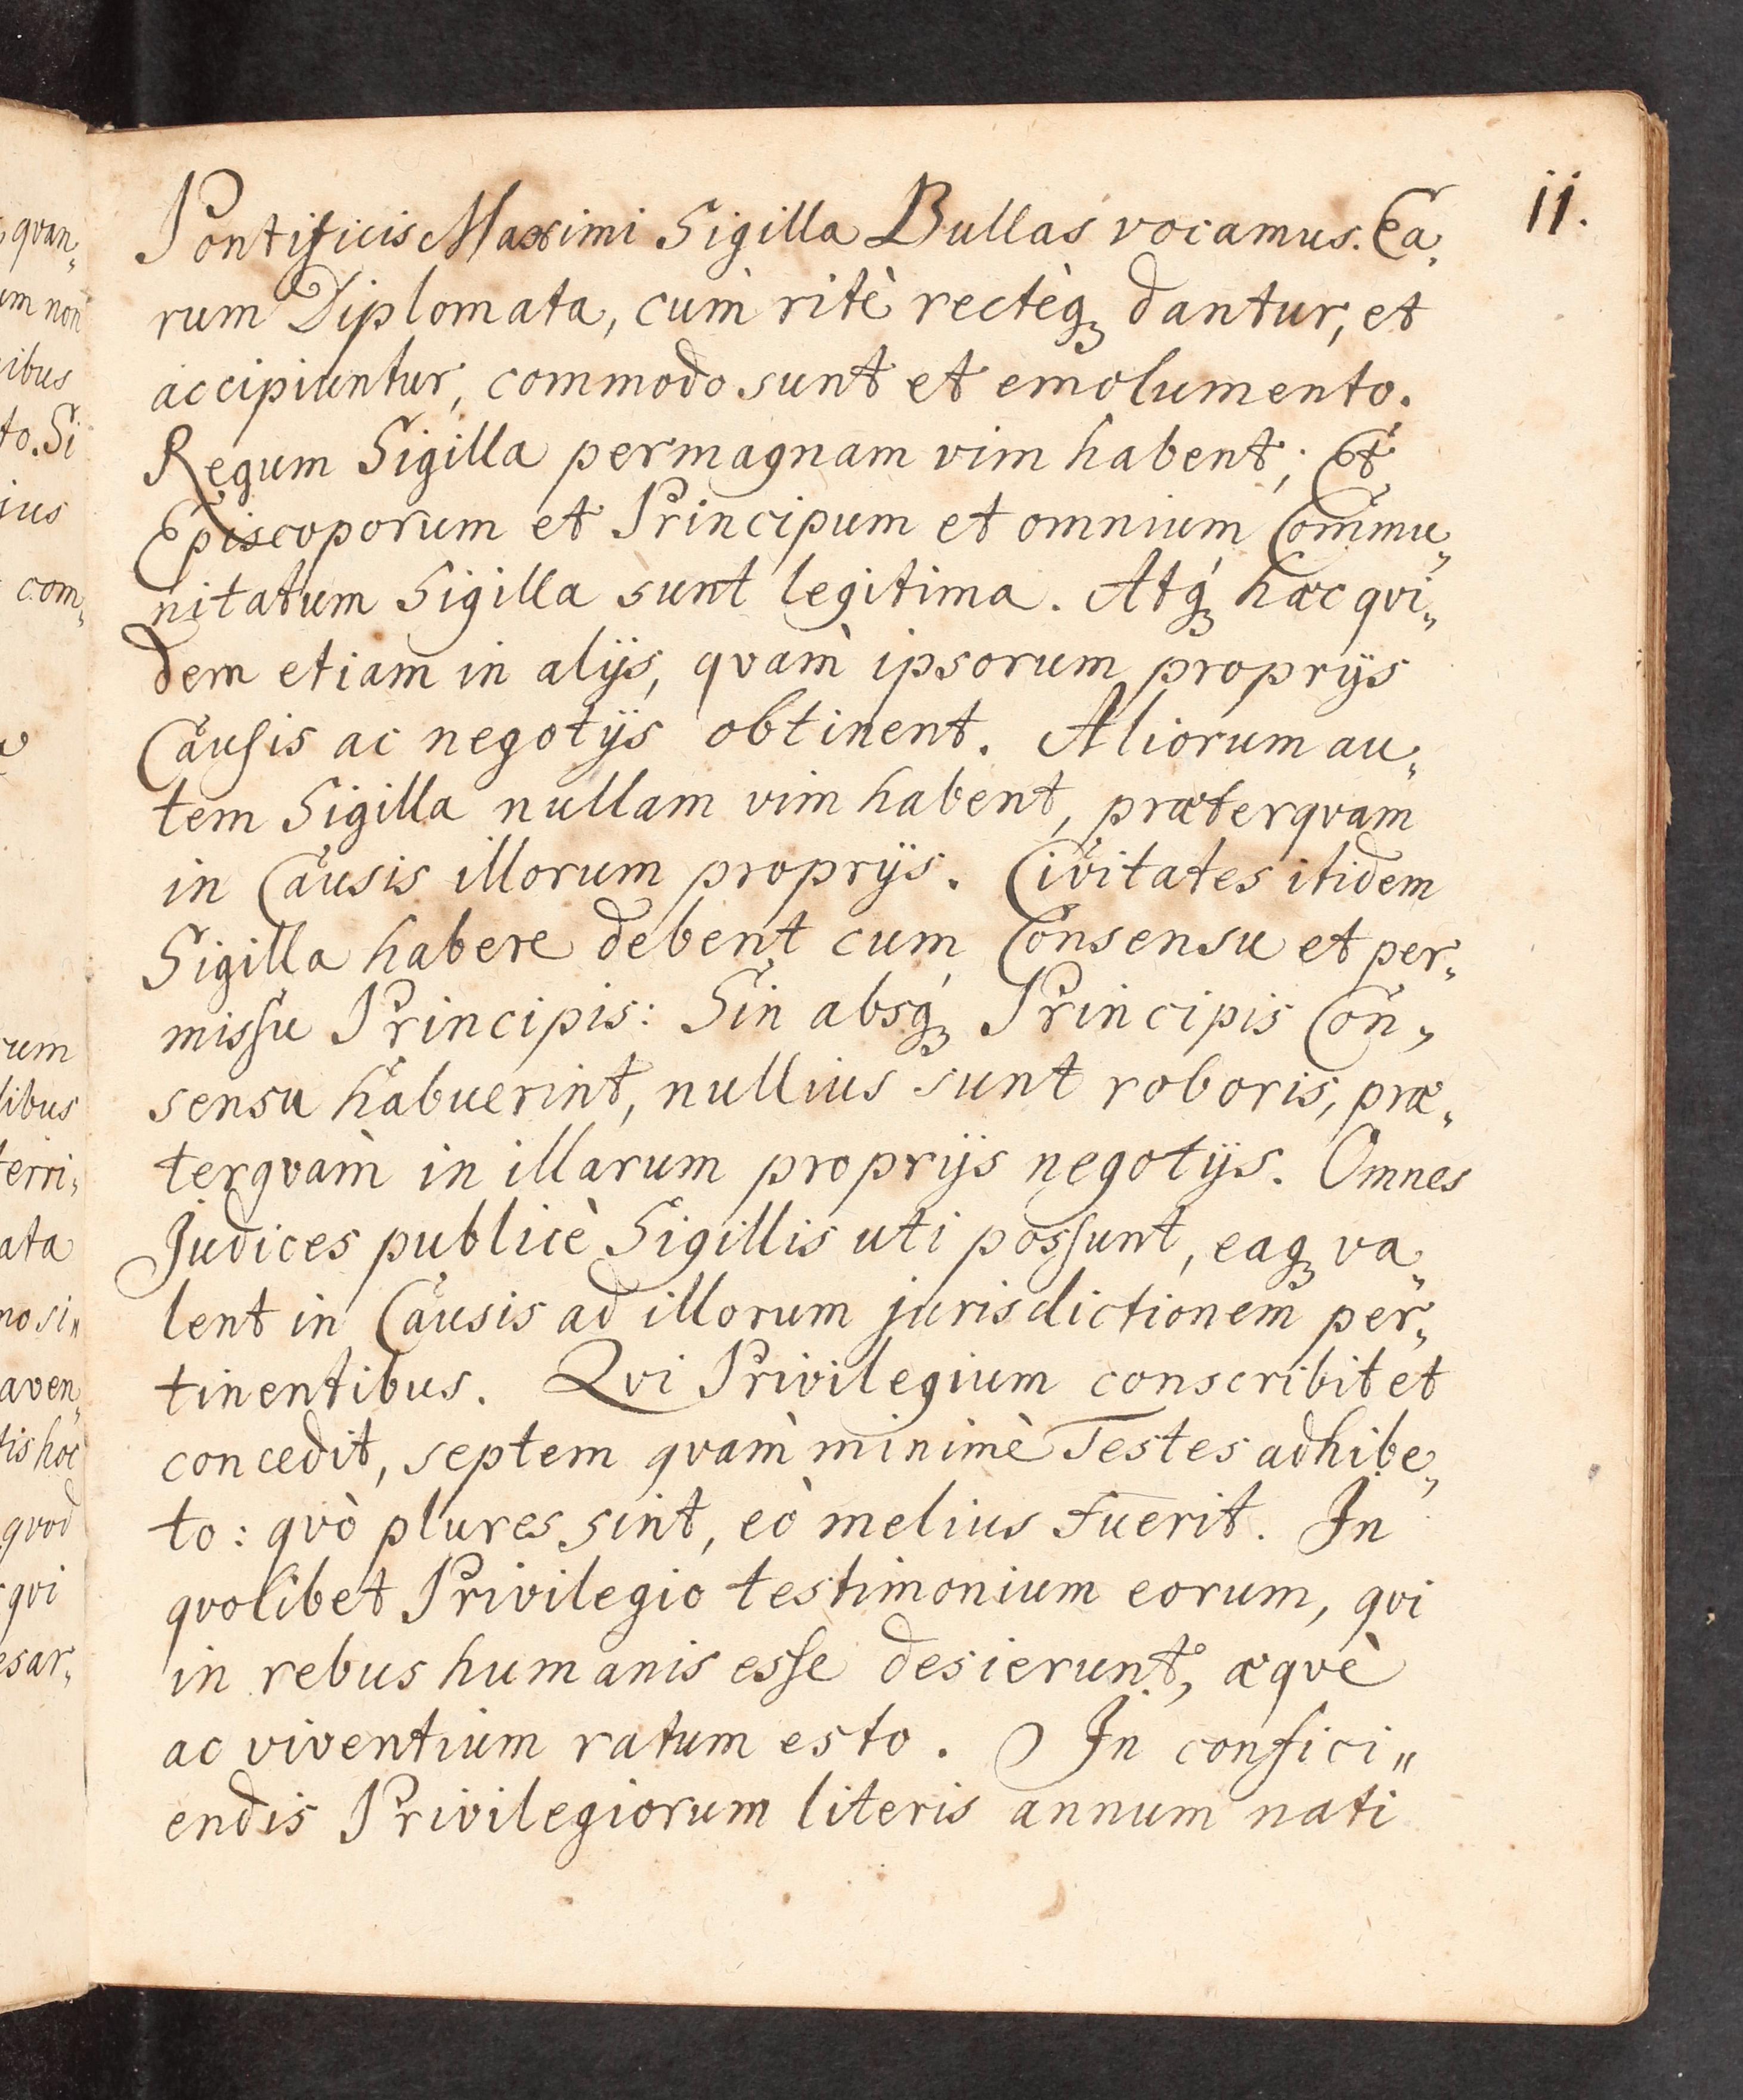 11.
Pontificis Maximi Sigilla Bullas vocamus. Ea„
rum Diplomata, cùm ritè rectèq3 dantur, et
accipiuntur, commodo sunt et emolumento.
Regum Sigilla permagnam vim habent; Et
Episcoporum et Principum et omnium Commu„
nitatum Sigilla sunt legitima. Atq3 hæc qvi„
dem etiam in alijs, qvàm ipsorum proprijs
Causis ac negotijs obtinent. Aliorum au„
tem Sigilla nullam vim habent, præterqvam
in Causis illorum proprijs. Civitates itidem
Sigilla habere debent cum Consensu et per„
missu Principis: Sin absq3 Principis Con„
sensu habuerint, nullius sunt roboris, præ„
terqvàm in illarum proprijs negotijs. Omnes
Judices publicè Sigillis uti possunt, eaq3 va„
lent in Causis ad illorum jurisdictionem per„
tinentibus. Qvi Privilegium conscribit et
concedit, septem qvàm minimè Testes adhibe„
to: qvò plures sint, eò melius fuerit. In
qvolibet Privilegio testimonium eorum, qvi
in rebus humanis esse desierunt, æqvè
ac viventium ratum esto. In confici„
endis Privilegiorum literis annum nati
qvan„
um non
ibus
to. Si
ius
com„
rum
libus
terri„
ata
no si„
aven„
tis hoc
qvod
qvi
esar„